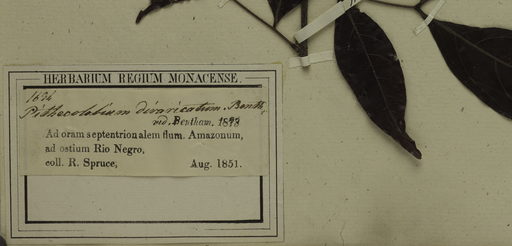 HERBARIUM REGIUM MONACENSE.
1634
Pithecolobium divaricatum. Benth.
vid. Bentham.
Ad oram septentrionalem flum. Amazonum,
ad ostium Rio Negro,
coll. R. Spruce, Aug. 1851.